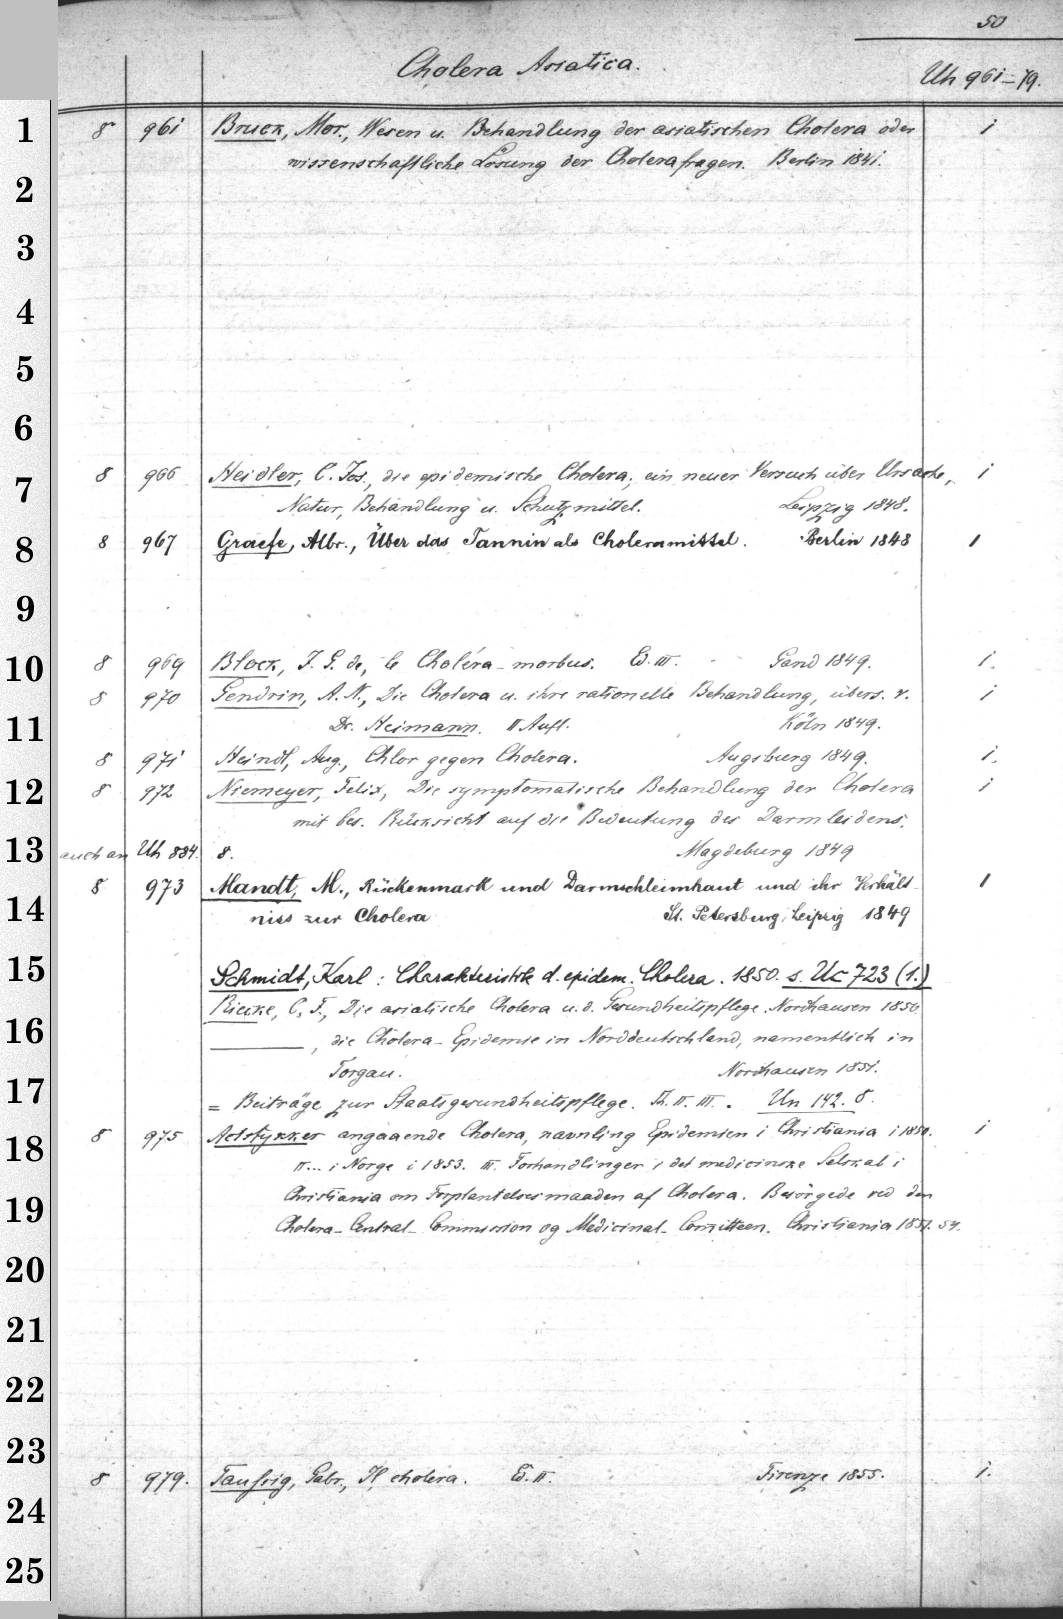 50
Cholera Asiatica.
Uh 961-79.
1
8 961 Bruck, Mor., Wesen u. Behandlung der asiatischen Cholera oder 1
wissenschaftliche Lösung der Cholerafragen. Berlin 1841.
2
3
4
5
6
8 966 Heidler, C. Jos., die epidemische Cholera, ein neuer Versuch über Ursache, 1
7
Natur, Behandlung u. Schutzmittel. Leipzig 1848.
8
8 967 Graefe, Albr., Über das Tannin als Choleramittel. Berlin 1848 1
9
10
8 969 Block, J. G. de, le Choléra-morbus. Ed. III. Gand 1849. 1.
8 970 Gendrin, A. N., Die Cholera u. ihre rationelle Behandlung, übers. v. 1
11
Dr. Heimann. II Aufl. Köln 1849.
8 971 Heindl, Aug., Chlor gegen Cholera. Augsburg 1849. 1.
12
8 972 Niemeyer, Felix, Die symptomatische Behandlung der Cholera 1
mit bes. Rücksicht auf die Bedeutung des Darmleidens.
13
auch an Uh 884. 8. Magdeburg 1849
8 973 Mandt, M., Rückenmark und Darmschleimhaut und ihr Verhält- 1
14
niss zur Cholera St. Petersburg, Leipzig 1849
15
Schmidt, Karl: Charakteristik d. epidem. Cholera. 1850. s. Uc 723 (1.)
Riecke, C. F., Die asiatische Cholera u. d. Gesundheitspflege. Nordhausen 1850.
16
———, die Cholera-Epidemie in Norddeutschland, namentlich in
Torgau. Nordhausen 1851.
17
= Beiträge zur Staatsgesundheitspflege. Th. II. III. Un 142. 8.
18
8 975 Actstykker angaaende Cholera, navnling Epidemien i Christiania i 1850. 1
II... i Norge i 1853. III. Forhandlinger i det medicinske Selskab i
19
Christiania om Forplantelsesmaaden af Cholera. Besörgede ved den
Cholera-Central-Commission og Medicinal-Comitteen. Christiania 1851. 54.
20
21
22
23
8 979. Taussig, Gabr., Il cholera. Ed. II. Firenze 1855. 1.
24
25